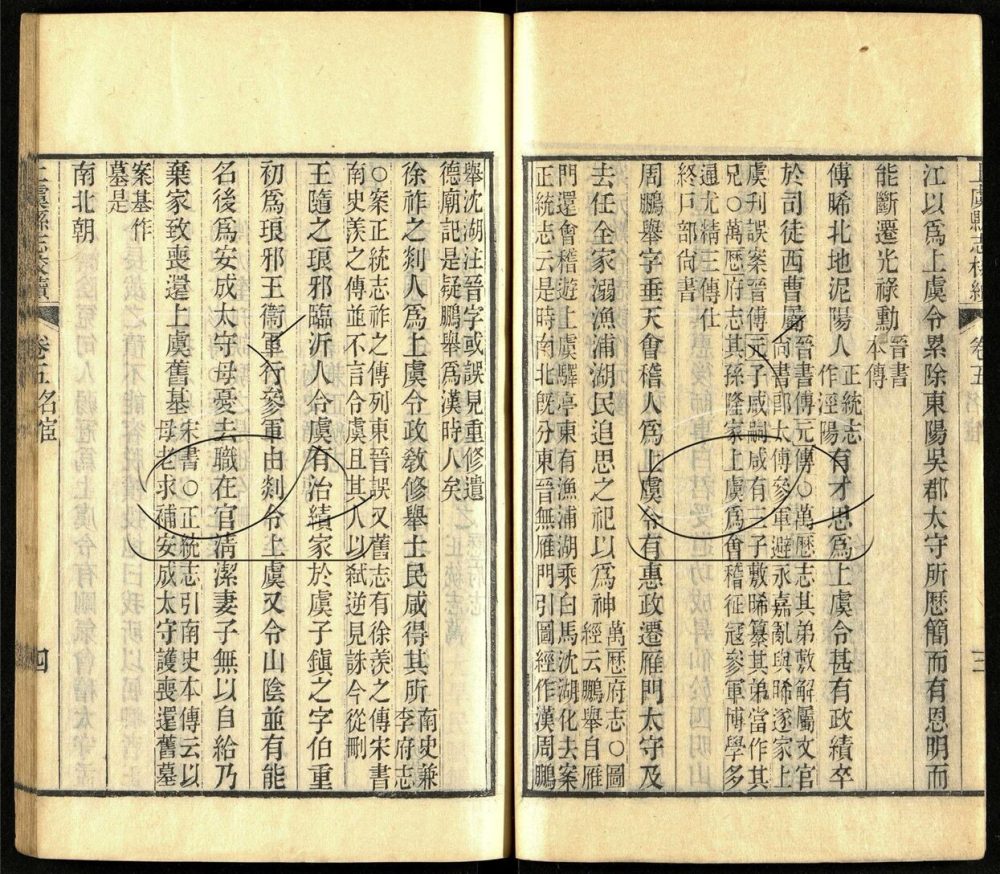 上虞縣志校續　卷五　名宦　三
江以爲上虞令累除東陽吳郡太守所歷簡而有恩明而
能斷遷光祿勳晉書
本傳
傅晞北地泥陽人正統志
作涇陽
有才思爲上虞令甚有政績卒
於司徒西曹屬晉書傅元傳〇萬歷志其弟敷解屬文官
尙書郎太傅參軍避永嘉亂與晞遂家上
虞刊誤案晉傅元子咸嗣咸有三子敷晞纂其弟當作其
兄〇萬歷府志其孫隆家上虞爲會稽征冠參軍博學多
通尤精三傳仕
終戸部尙書
周鵬舉字垂天會稽人爲上虞令有惠政遷雁門太守及
去任全家溺漁浦湖民追思之祀以爲神萬歷府志〇圖
經云鵬舉自雁
門還會稽遊上虞驛亭東有漁浦湖乘白馬沈湖化去案
正統志云是時南北旣分東晉無雁門引圖經作漢周鵬
舉沈湖注晉字或誤見重修遺
德廟記是疑鵬舉爲漢時人矣
徐祚之剡人爲上虞令政敎修舉士民咸得其所南史兼
李府志
〇案正統志祚之傳列東晉誤又舊志有徐羨之傳宋書
南史羨之傳並不言令虞且其人以弒逆見誅今從刪
王隨之琅邪臨沂人令虞有治績家於虞子鎭之字伯重
初爲琅邪王衞軍行參軍由剡令上虞又令山陰並有能
名後爲安成太守母憂去職在官淸潔妻子無以自給乃
棄家致喪還上虞舊基宋書〇正統志引南史本傳云以
母老求補安成太守護喪還舊墓
案基作
墓是
南北朝
上虞縣志校續　卷五　名宦　四